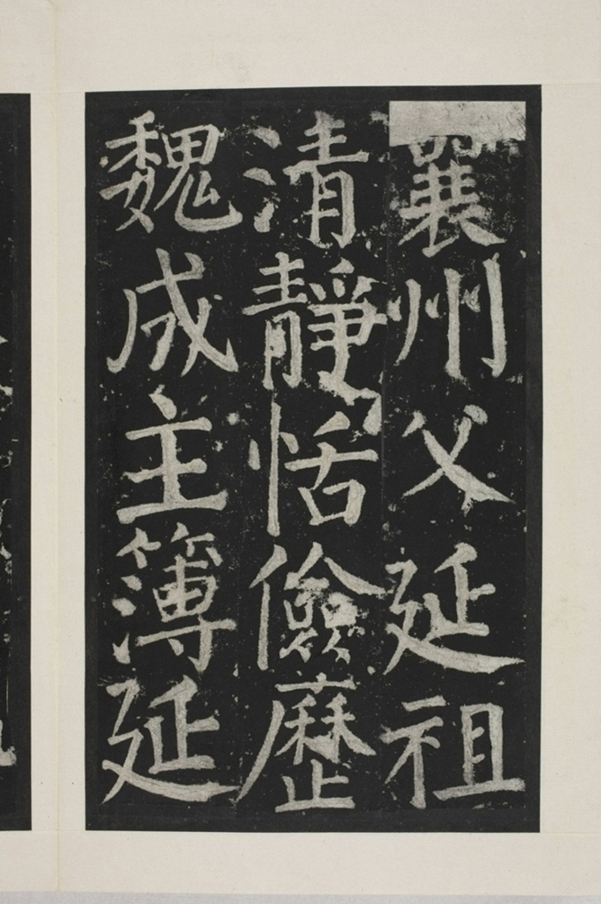 襄州父延祖
清靜恬儉歷
魏成主簿延